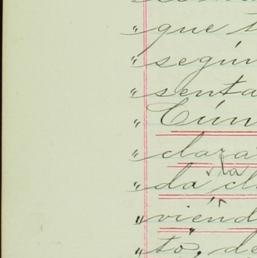 " que t
" según
" senta
" Cún
" clara
" da cla
" viend
" to, de